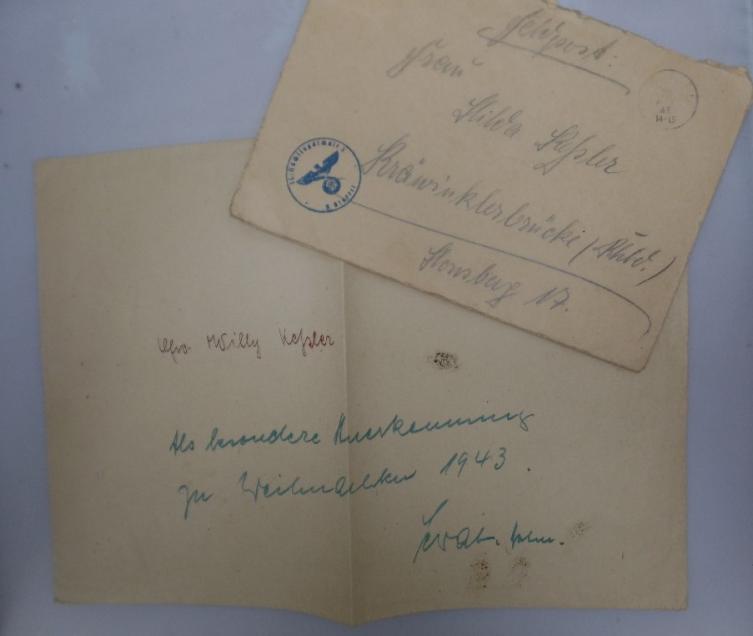 Feldpost.
Frau
Hilda Keßler
Kräwinklerbrücke (Rhld.)
Stonsberg 17.
14-15
Willy Keßler
Als besondere Anerkennung
zu Weihnachten 1943.